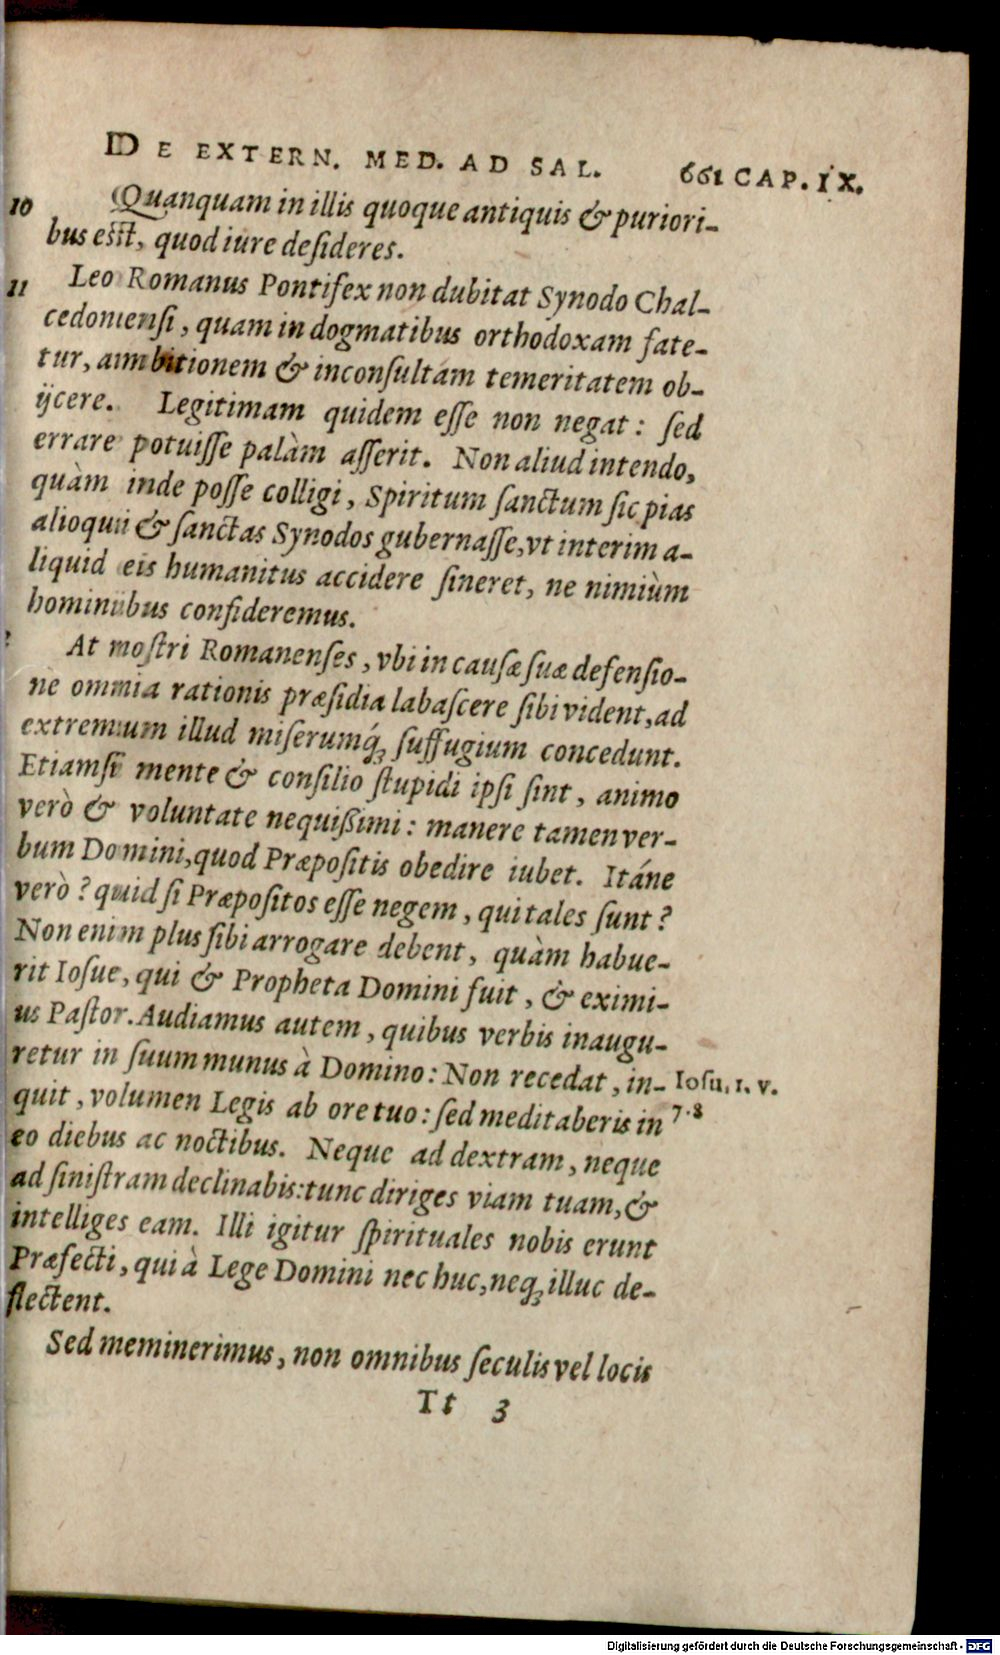 DE EXTERN. MED. AD SAL. 661 CAP. IX.
10 Quanquam in illis quoque antiquis & puriori-
bus est, quod iure desideres.
11 Leo Romanus Pontifex non dubitat Synodo Chal-
cedonensi, quam in dogmatibus orthodoxam fate-
tur, ambitionem & inconsultam temeritatem ob-
ijcere. Legitimam quidem esse non negat: sed
errare potuisse palàm asserit. Non aliud intendo,
quàm inde posse colligi, Spiritum sanctum sic pias
alioqui & sanctas Synodos gubernasse, vt interim a-
liquid eis humanitus accidere sineret, ne nimiùm
hominibus confideremus.
At nostri Romanenses, vbi in causæ suæ defensio-
ne omnia rationis præsidia labascere sibi vident, ad
extremum illud miserumq́; suffugium concedunt.
Etiamsi mente & consilio stupidi ipsi sint, animo
verò & voluntate nequißimi: manere tamen ver-
bum Domini, quod Præpositis obedire iubet. Itáne
verò? quid si Præpositos esse negem, qui tales sunt?
Non enim plus sibi arrogare debent, quàm habue-
rit Iosue, qui & Propheta Domini fuit, & eximi-
us Pastor. Audiamus autem, quibus verbis inaugu-
retur in suum munus à Domino: Non recedat, in-
Iosu. 1. v.
quit, volumen Legis ab ore tuo: sed meditaberis in
7.8
eo diebus ac noctibus. Neque ad dextram, neque
ad sinistram declinabis: tunc diriges viam tuam, &
intelliges eam. Illi igitur spirituales nobis erunt
Præfecti, qui à Lege Domini nec huc, neq; illuc de-
flectent.
Sed meminerimus, non omnibus seculis vel locis
Tt 3
Digitalisierung gefördert durch die Deutsche Forschungsgemeinschaft - DFG